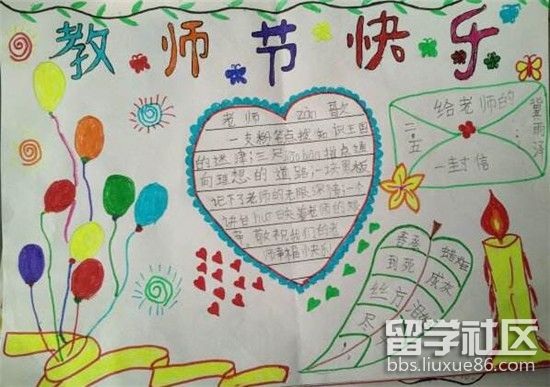 教师节快乐
老师 zàn 歌
一支粉笔点拨知识王国
的迷津;三尺jiǎo biān指点通
向理想的道路;一块黑板
记下了老师的无限深情;一个
讲台
着老师的
敬祝我们的老
师幸福快乐
给老师的
一封信
二.五
冀雨泽
春蚕
到死
丝方
尽
蜡炬
成灰
泪
留学社区
bbs.liuxue86.com